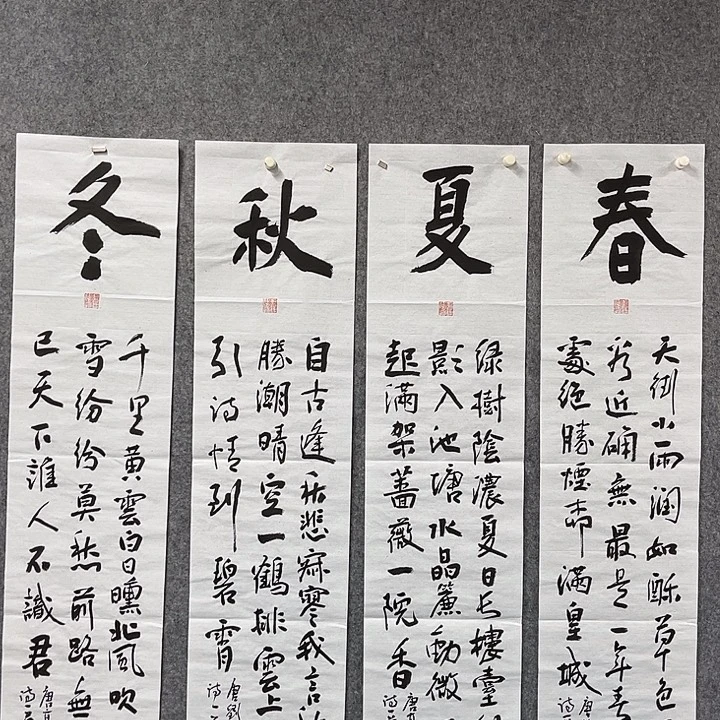 春
天街小雨潤如酥草色
看近确無最是一年春
處絕勝煙柳滿皇城
唐
诗
夏
绿樹陰濃夏日长樓臺
影入池塘水晶簾動微
起滿架薔薇一院香
唐高
诗
秋
自古逢秋悲寂寥我言
勝潮晴空一鶴排雲上
引诗情到碧霄
唐劉
诗一
冬
千里黄雲白日曛北風吹
雪纷纷莫愁前路無
已天下誰人不識君
唐高
诗一